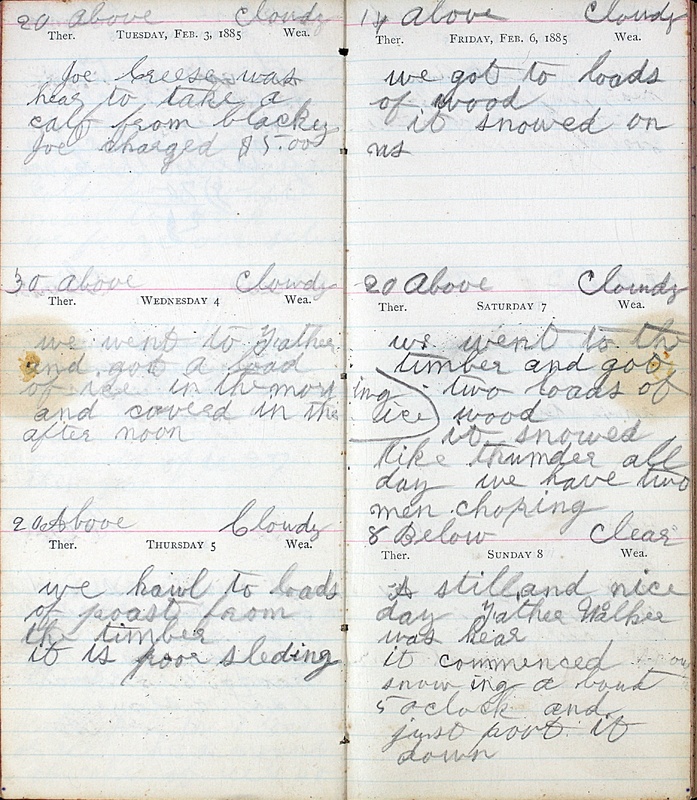 20 above Cloudy
Ther. TUESDAY, FEB. 3, 1885 Wea.
Joe Creese was
hear to take a
calf from blackey
Joe charged $5.00
30 above Clowdy
Ther. WEDNESDAY 4 Wea.
we went to Father
and got a load
of ice in the morn
and covered in the
after noon
20 Above Cloudy
Ther. THURSDAY 5 Wea.
we hawl to loads
of poast from
the timber
it is poor sleding
14 above Cloudy
Ther. FRIDAY, FEB. 6, 1885 Wea.
we got to loads
of wood
it snowed on
us
20 Above Cloudy
Ther. SATURDAY 7 Wea.
we went to the
timber and got
ing two loads of
ice wood
it snowed
like thunder all
day we have two
men choping
8 Below Clear
Ther. SUNDAY 8 Wea.
A still and nice
day Father Walker
was hear
it commenced
snow ing a bout
5 oclock and
just poot it
down